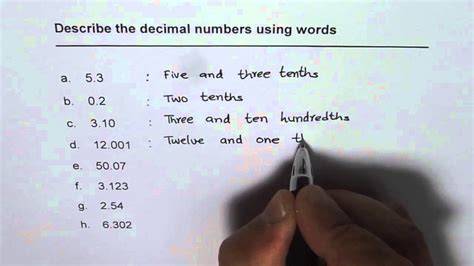 Describe the decimal numbers using words
a. 5.3 : Five and three tenths
b. 0.2 : Two tenths
c. 3.10 : Three and ten hundredths
d. 12.001 : Twelve and one t
e. 50.07
f. 3.123
g. 2.54
h. 6.302